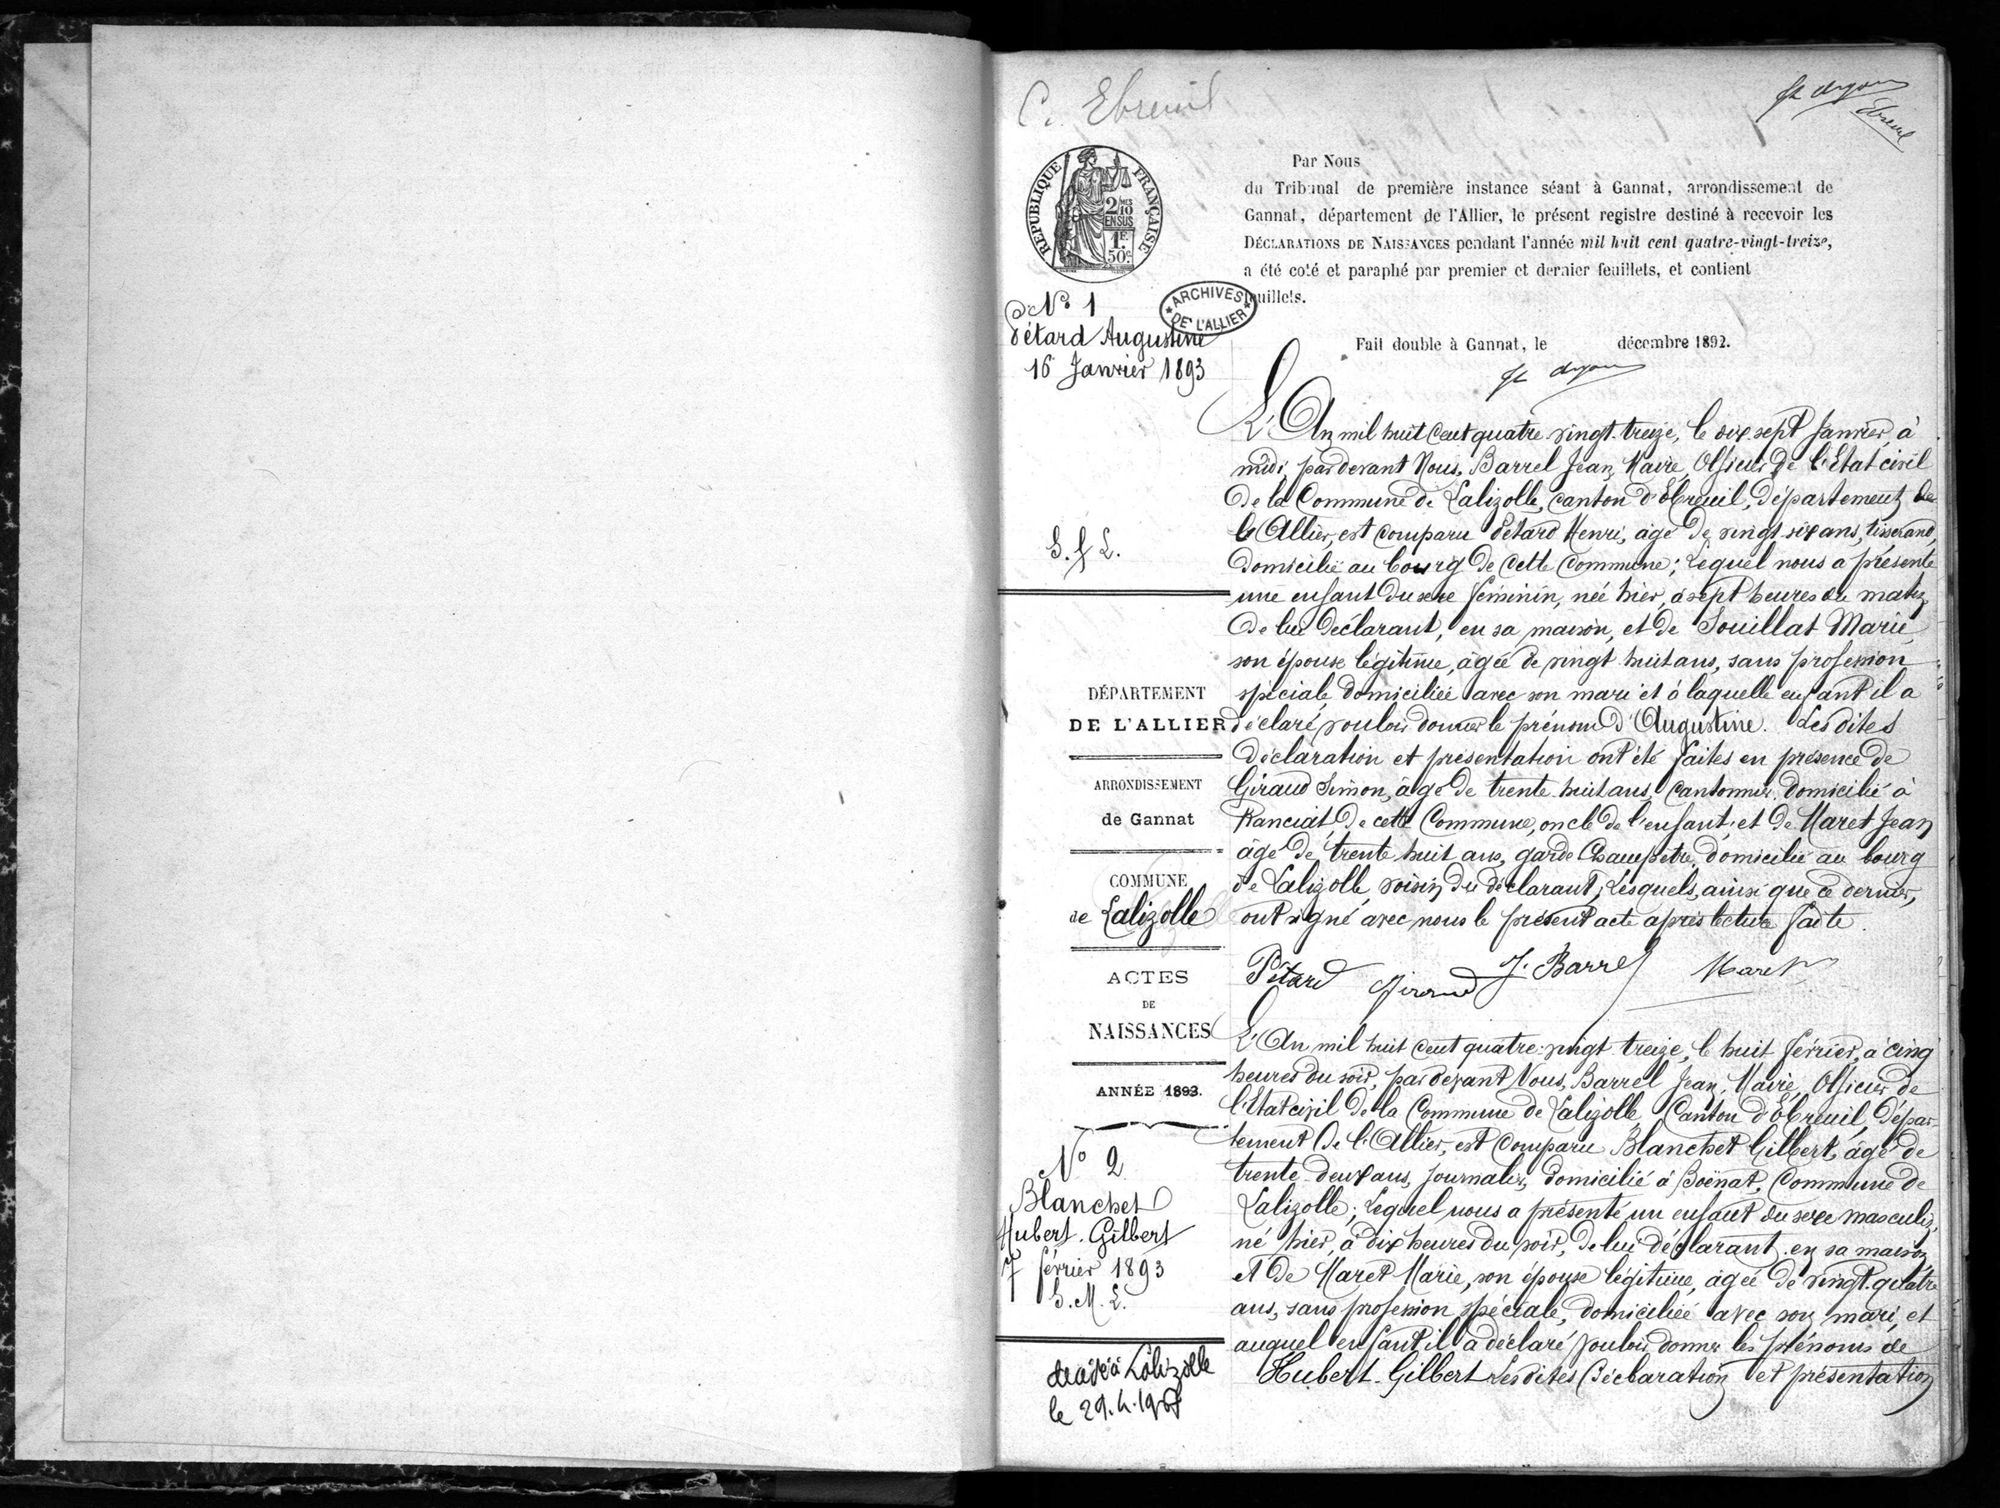 C. Ebreuil
Ebreuil
RÉPUBLIQUE FRANÇAISE
2/10 MES
EN SUS
1F
50c
Par Nous
du Tribunal de première instance séant à Gannat, arrondissement de
Gannat, département de l'Allier, le présent registre destiné à recevoir les
DÉCLARATIONS DE NAISSANCES pendant l'année mil huit cent quatre-vingt-treize,
a été coté et paraphé par premier et dernier feuillets, et contient
feuillets.
ARCHIVES DE L'ALLIER
Fait double à Gannat, le décembre 1892.
No 1
Pétard Augustine
16 Janvier 1893
L'An mil huit cent quatre vingt-treize, le dix sept Janvier, à
midi, par devant Nous, Barrel Jean, Maire, Officier de l'Etat civil
De la Commune de Lalizolle, canton d'Ebreuil, département de
l'Allier, est comparu Pétard Henri, âgé de vingt-six ans, tisserand,
domicilié au bourg de cette commune; Lequel nous a présenté
une enfant du sexe féminin, née hier, à sept heures du matin,
De lui déclarant, en sa maison, et de Souillat Marie,
son épouse légitime, âgée de vingt huit ans, sans profession
spéciale domiciliée avec son mari et à laquelle enfant il a
déclaré vouloir donner le prénom d'Augustine. Lesdites
déclaration et présentation ont été faites en présence de
Giraud Simon, âgé de trente-huit ans, cantonnier, domicilié à
Ranciat, de cette Commune, oncle de l'enfant, et de Maret Jean
âgé de trente huit ans, garde champêtre, domicilié au bourg
de Lalizolle, voisin du déclarant; Lesquels, ainsi que ce dernier,
ont signé avec nous le présent acte après lecture faite.
Pétard Giraud J. Barrel Maret
DÉPARTEMENT
DE L'ALLIER
ARRONDISSEMENT
de Gannat
COMMUNE
de Lalizolle
ACTES
DE
NAISSANCES
ANNÉE 1893.
No 2
Blanchet
Hubert-Gilbert
7 février 1893
S. M. L.
décédé à Lalizolle
L'An mil huit cent quatre-vingt treize, le huit février, à cinq
heures du soir, par devant Nous, Barrel Jean, Maire, Officier de
l'Etat civil de la Commune de Lalizolle, Canton d'Ebreuil, Dépar-
tement de l'Allier, est comparu Blanchet Gilbert, âgé de
trente-deux ans, journalier, domicilié à Boënat, Commune de
Lalizolle; Lequel nous a présenté un enfant du sexe masculin,
né hier, à dix heures du soir, de lui déclarant, en sa maison,
et de Maret Marie, son épouse légitime, âgée de vingt-quatre
ans, sans profession spéciale, domiciliée avec son mari, et
auquel enfant il a déclaré vouloir donner les prénoms de
Hubert-Gilbert Lesdites Déclaration et présentation